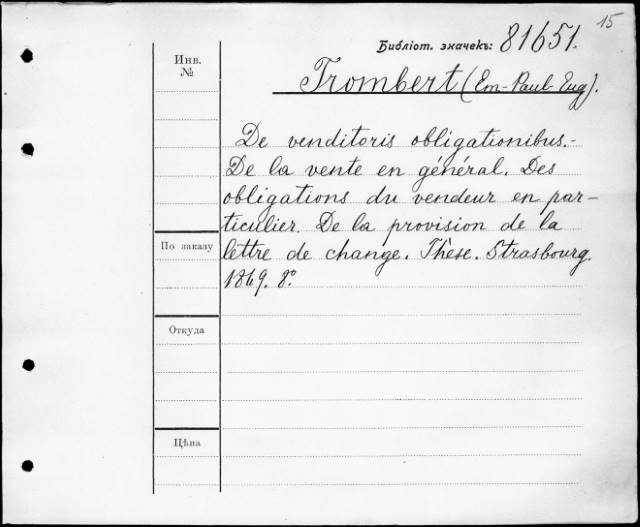 15
Библіот. значекъ: 81651.
Инв.
№
Trombert (Em-Paul-Eug).
De venditoris obligationibus.-
De la vente en général. Des
obligations du vendeur en par-
ticulier. De la provision de la
По заказу
lettre de change. Thèse. Strasbourg.
1869. 8°
Откуда
Цѣна